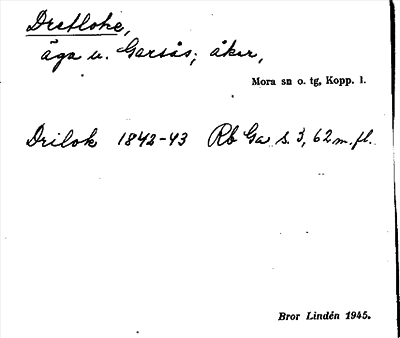 Dretloke,
äga u. Garsås; åker,
Mora sn o. tg, Kopp. l.
Drilok 1842-43 Rb Ga s. 3, 62 m. fl.
Bror Lindén 1945.